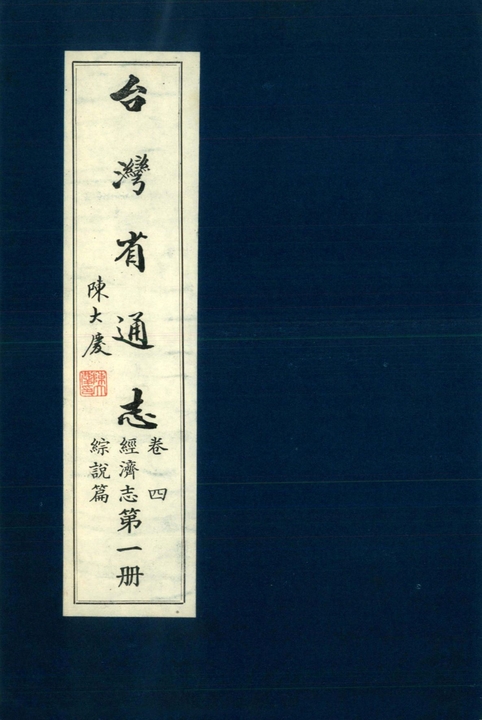 台灣省通志
卷四
經濟志
綜說篇
第一册
陳大慶